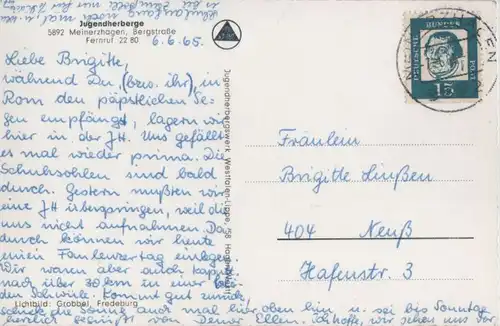 Jugendherberge
5892 Meinerzhagen, Bergstraße
Fernruf 22 80
6.6.65.
Liebe Brigitte,
während Du, (bzw. ihr), in
Rom den päpstlichen Se-
gen empfängst, lagern wir
hier in der JH. Uns gefällt
es mal wieder prima. Die
Schuhsohlen sind bald
durch. Gestern mußten wir
eine JH überspringen, weil die
uns nicht aufnahmen. Da-
durch können wir heute
einen Faulenzertag einlegen.
Wir waren aber auch kaputt
nach über 30 km in einer
den Schwüle. Kommt gut zurück
schick die Sonne auch mal hier oben hin u. sei bis Sonntag
herzlich gegrüßt von Deiner Ellen.
Lichtbild: Grobbel, Fredeburg
Jugendherbergswerk Westfalen-Lippe, 58 Hagen
DEUTSCHE
BUNDES
POST
15
Fräulein
Brigitte Linßen
404 Neuß
Hafenstr. 3